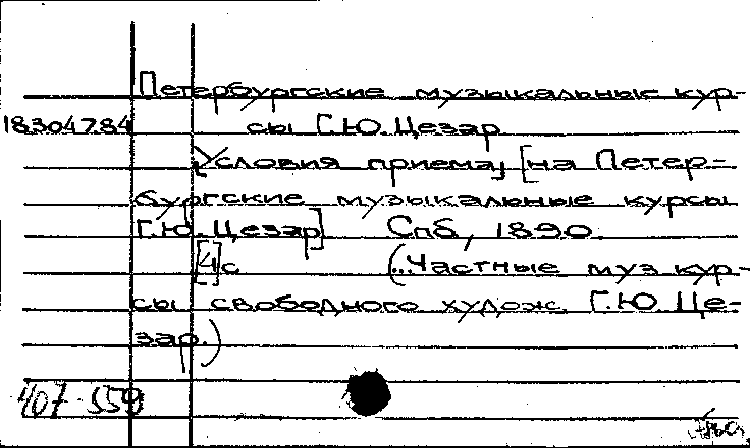 Петербургские музыкальные кур-
18.304.7.84 сы Г.Ю. Цезар
[Условия приема] [на Петер-
бургские музыкальные курсы
Г.Ю. Цезар] Спб, 1890.
[4] с (...Частные муз кур-
сы свободного худож. Г.Ю. Це-
зар.)
407-559